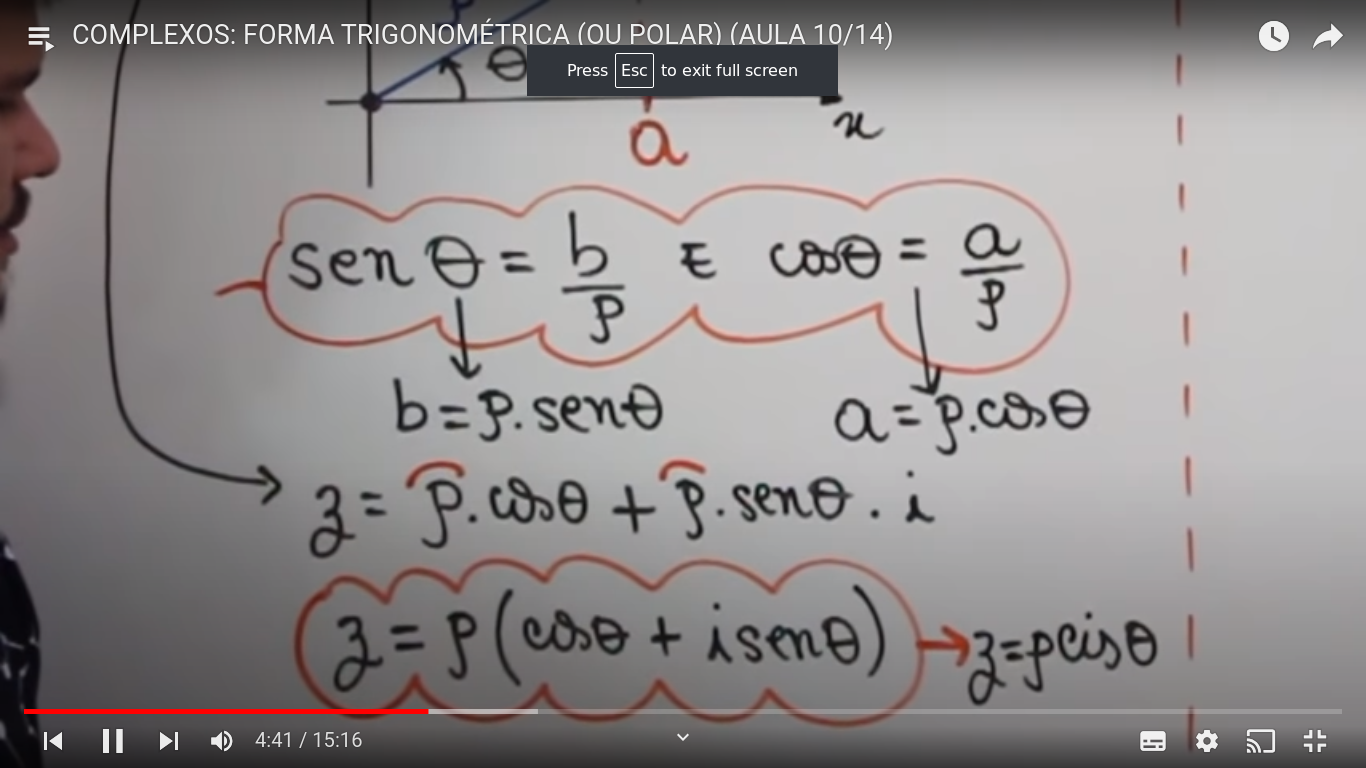 COMPLEXOS: FORMA TRIGONOMÉTRICA (OU POLAR) (AULA 10/14)
Press Esc to exit full screen
θ
a
x
sen θ = b/ρ E cosθ = a/ρ
b = ρ.senθ a = ρ.cosθ
z = ρ.cosθ + ρ.senθ . i
z = ρ(cosθ + i senθ) → z=ρcisθ
4:41 / 15:16